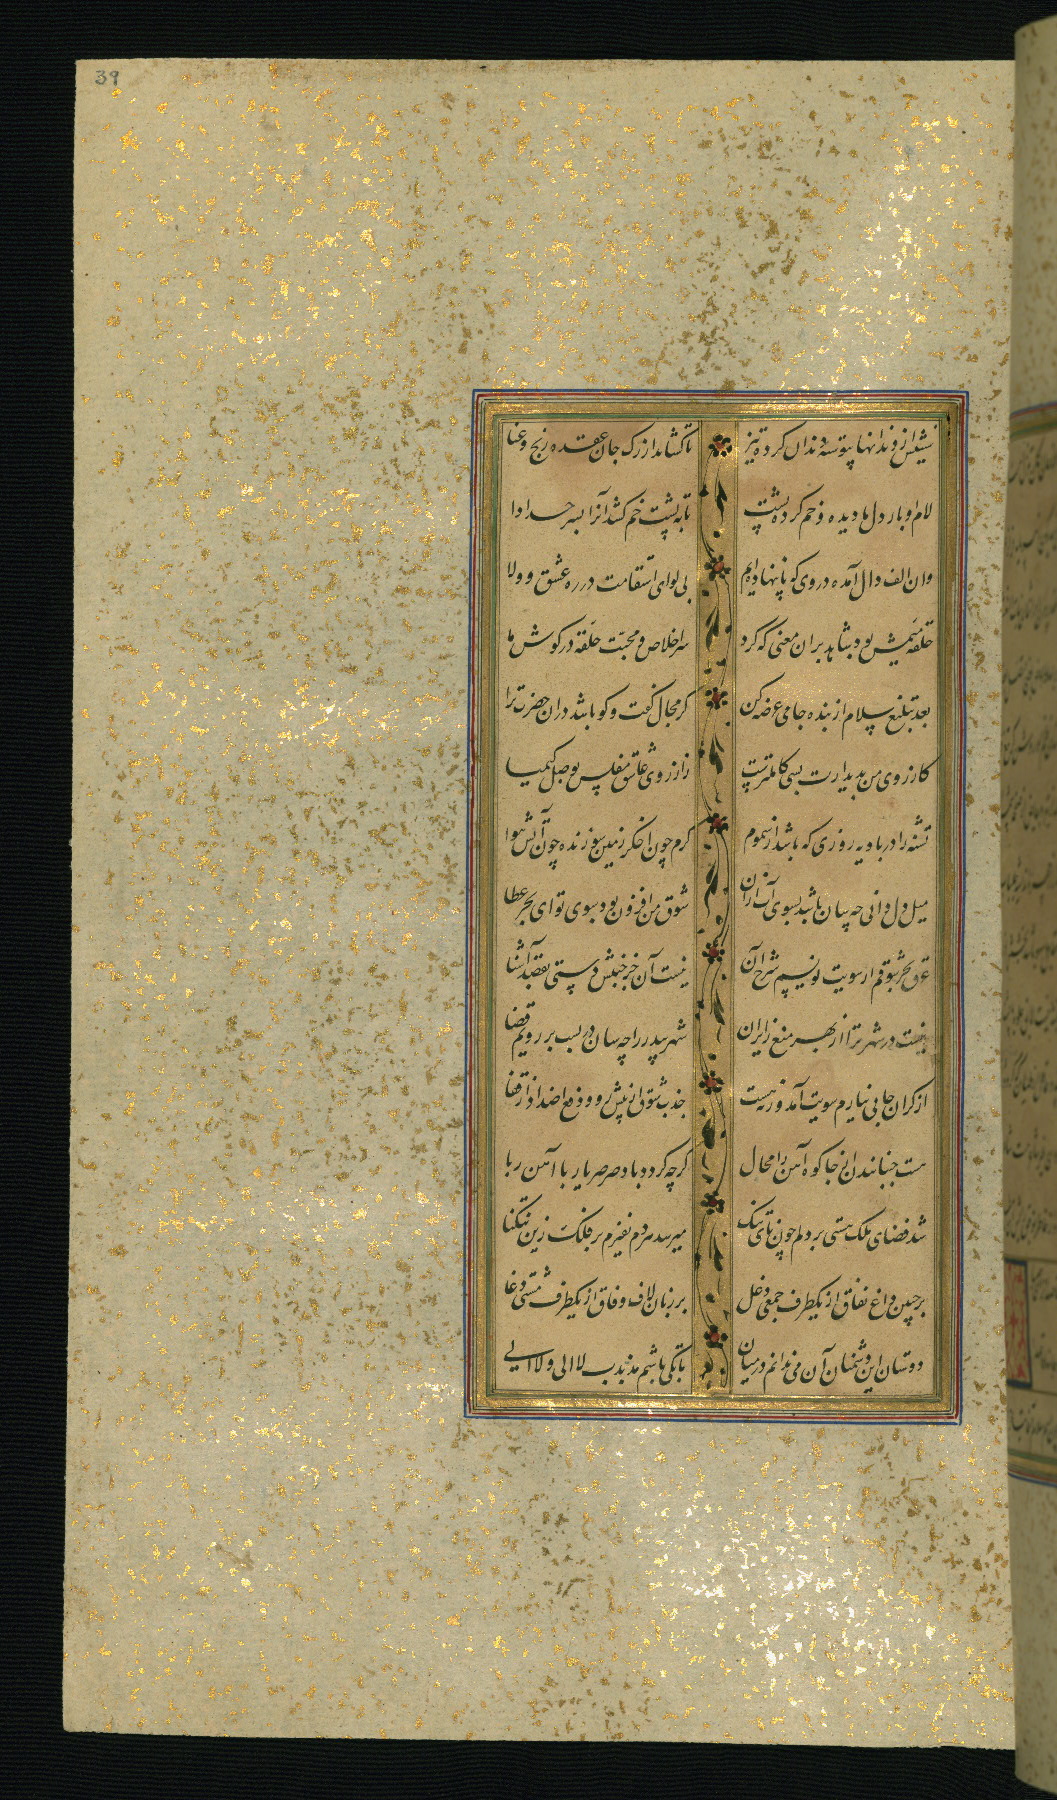 39
شینش از دندانها پیوسته دندان کرده تیز تا گشاید از رگ جان عقده رنج و عنا
لام او بار دل ما دیده و خم کرده پشت تا به پشت خم کشد آنرا بسر حد ادا
وان الف دال آمده در وی که پا ننهاده ایم بی لوای استقامت در ره عشق و ولا
حلقه میمش بود شاهد بران معنی که کرد سر اخلاص و محبت حلقه در گوش ما
بعد تبلیغ سلام از بنده جامی عرضه کن گر مجال گفت و گو باشد دران حضرت ترا
کارزوی من بدیدارت بسی کاملترست زارزوی عاشق مفلس بوصل کیمیا
تشنه را در بادیه روزی که باشد از سموم گرم چون اخگر زمین سوزنده چون آتش هوا
میل دل دانی چه سان باشد بسوی آب ازان شوق من افزون بود سوی تو ای بحر عطا
غرق بحر شوقم ار سویت نویسم شرح آن نیست آن جز جنبش دستی بقصد آشنا
نیست در شهر ترا از بهر منع زایران شهرسپر را چه سان در بست بر رویم قضا
از گران جانی نیارم سویت آمد ورنه هست جذب شوق از پیش رو و دفع اضداد از قفا
هست جنبانیدن از جا کوه آهن را محال گرچه گردد باد صرصر یار با آهن ربا
شد فضای ملک هستی بر دلم چون نای تنگ میرسد هر دم نفیرم بر فلک زین تنگنا
بر جبین داغ نفاق از یکطرف جمعی دغل بر زبان لاف وفاق از یکطرف مشتی دغا
دوستان این دشمنان آن می ندانم در میان تا بکی باشم مذبذب لا الی و لا الی